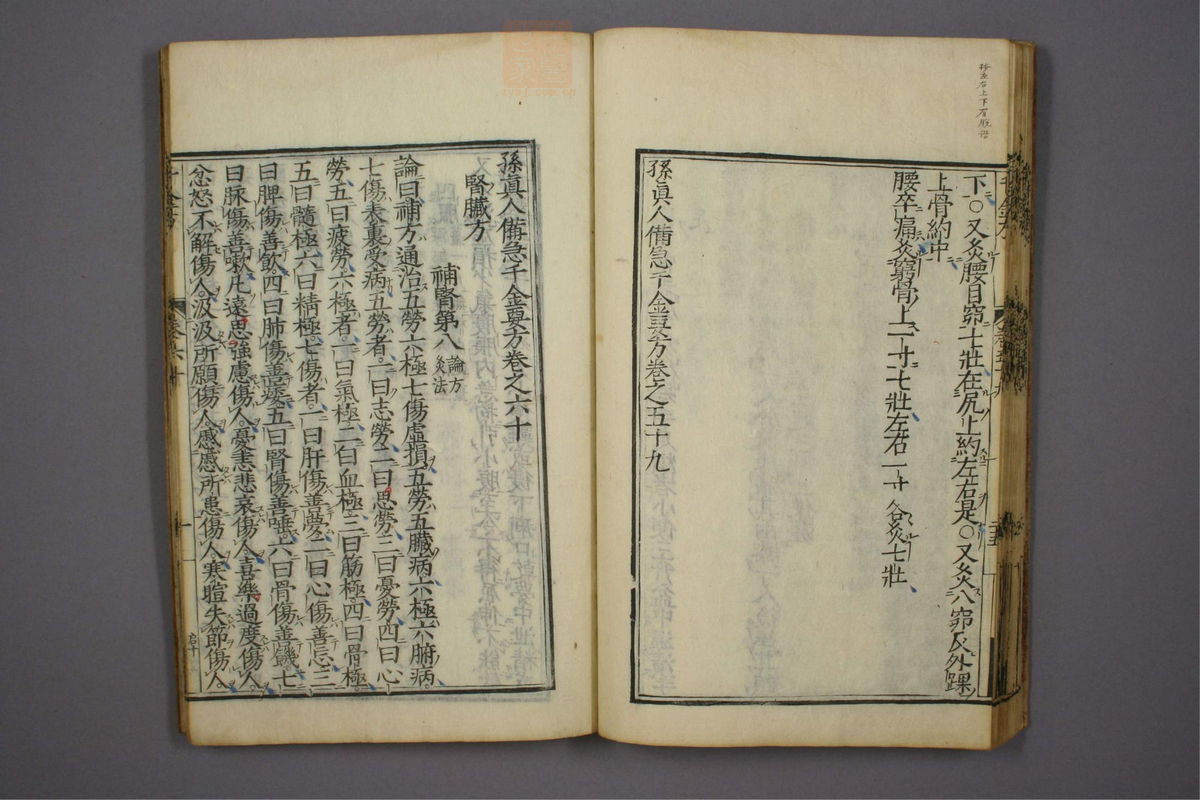 下○又灸腰目窌七壯在尻上約左右是○又灸八窌及外踝
上骨約中
腰卒痛灸窮骨上一寸七壯左右一寸各灸七壯
孫眞人備急千金要方卷之五十九
孫眞人備急千金要方卷之六十
腎臟方
補腎第八 論方灸法
論曰補方通治五勞六極七傷虛損五勞五臟病六極六腑病
七傷表裏受病五勞者一曰志勞二曰思勞三曰憂勞四曰心
勞五曰疲勞六極者一曰氣極二曰血極三曰筋極四曰骨極
五曰髓極六曰精極七傷者一曰肝傷善夢二曰心傷善忘三
曰脾傷善飲四曰肺傷善痿五曰腎傷善唾六曰骨傷善飢七
曰脉傷善嗽凡遠思強慮傷人憂恚悲哀傷人喜樂過度傷人
忿怒不解傷人汲汲所願傷人慼慼所患傷人寒暄失節傷人